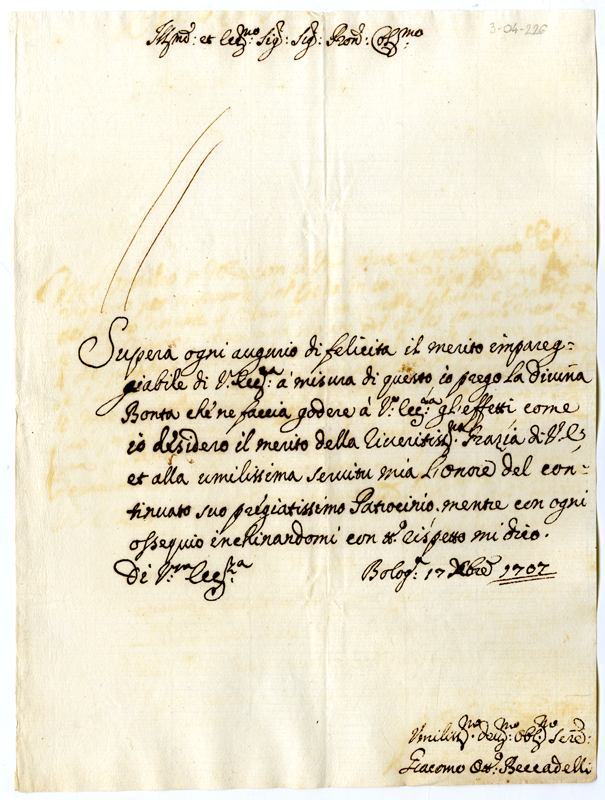 3-04-226
Ill.mo et Ecc.mo Sig.r Sig.r Pron. Col.mo
Supera ogni augurio di felicita il merito impareg-
giabile di V.ra Ecc.za à misura di questo io prego la Divina
Bonta che ne faccia godere à V.ra Ecc.za gl'effetti come
io desidero il merito della riveritiss.ma Grazia di V. E.
et alla umilissima servitu mia l'onore del con-
tinuato suo pregiatissimo Patrocinio. mentre con ogni
ossequio inchinandomi con tt.o rispetto mi dico.
Di V.ra Ecc.za Bolog.a 17 Xbre 1707
Umiliss.mo Dev.mo Obl.mo Ser.re
Giacomo Ott.o Beccadelli